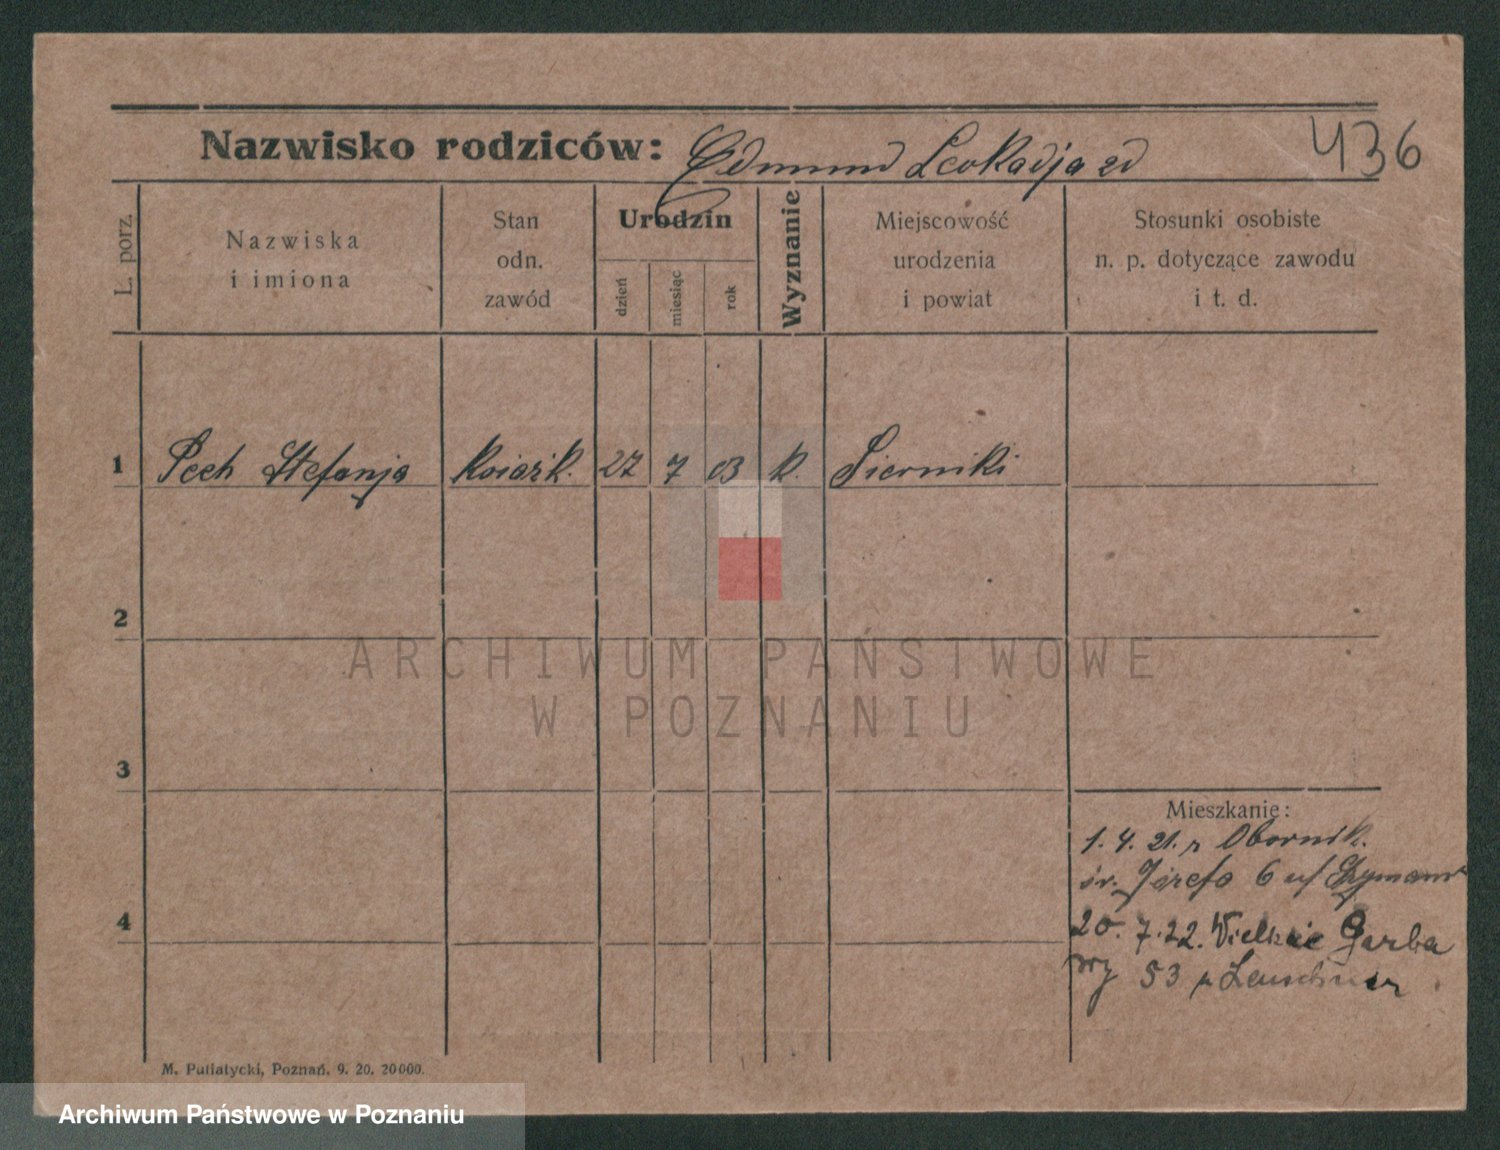 Nazwisko rodziców: Edmund Leokadja zd
436
L. porz.
Nazwiska
i imiona
Stan
odn.
zawód
Urodzin
dzień
miesiąc
rok
Wyznanie
Miejscowość
urodzenia
i powiat
Stosunki osobiste
n. p. dotyczące zawodu
i t. d.
1 Pech Stefanja 27 7 03 k. Sierniki
2
ARCHIWUM PAŃSTWOWE
W POZNANIU
3
Mieszkanie:
1. 4. 21. z Obornik.
św. Józefa 6
4
20. 7. 22. Wielkie Garba
ry 53 p Leuschner
M. Putiatycki, Poznań. 9. 20. 20000.
Archiwum Państwowe w Poznaniu